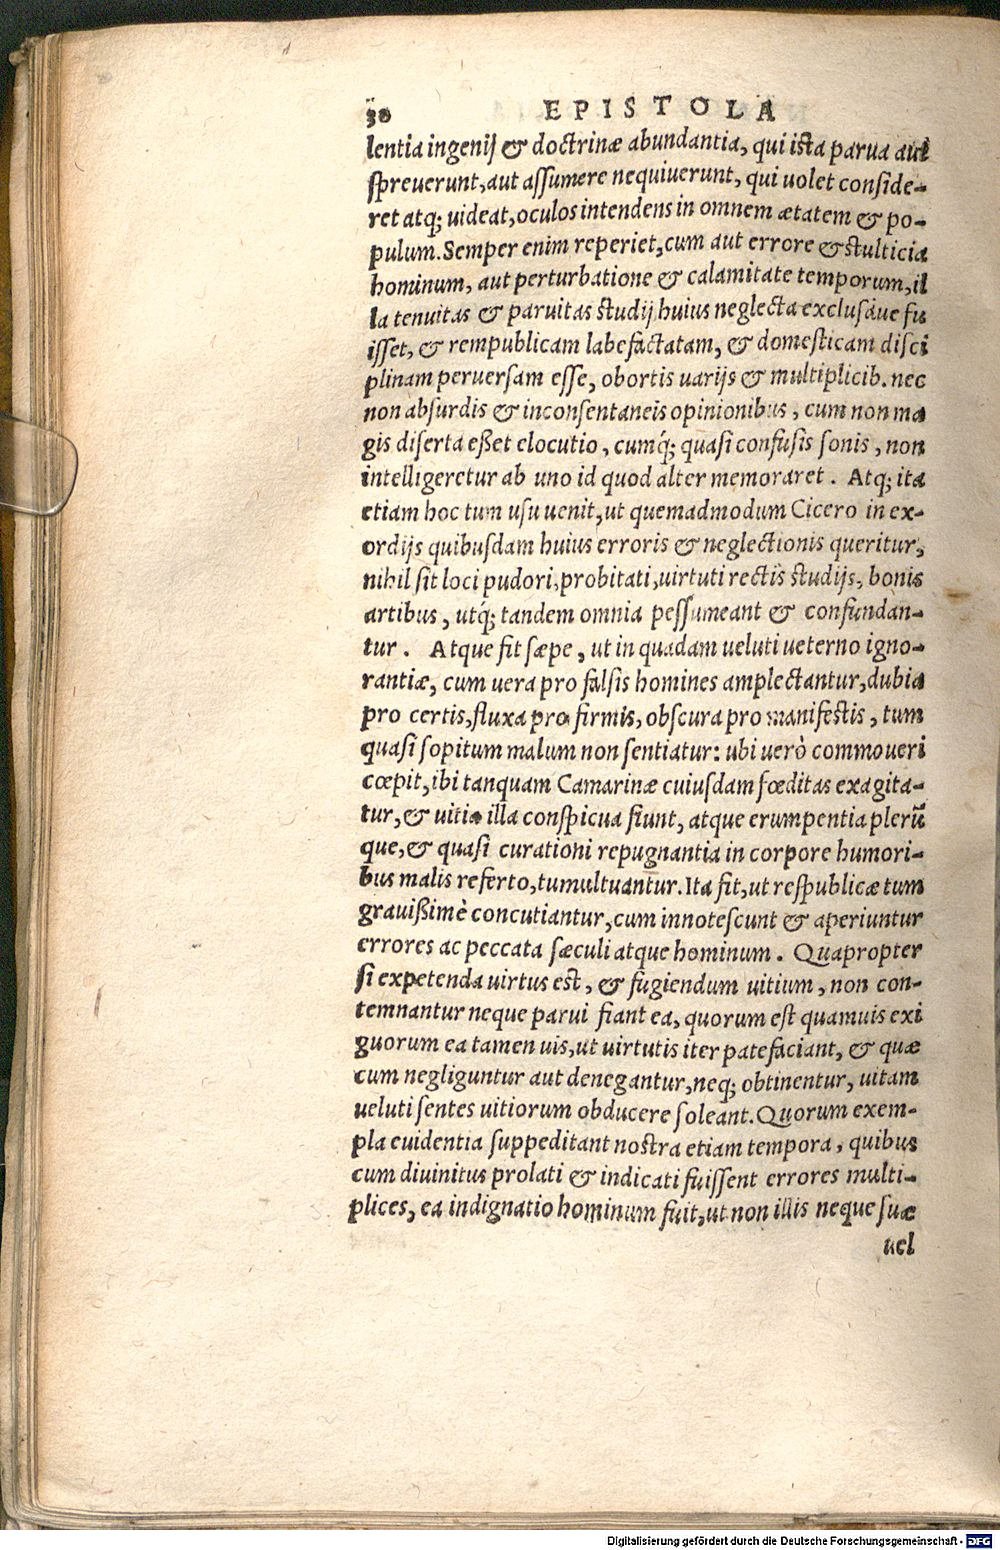 30 EPISTOLA
lentia ingenij & doctrinæ abundantia, qui ista parua aut
spreuerunt, aut assumere nequiuerunt, qui uolet conside-
ret atq; uideat, oculos intendens in omnem ætatem & po-
pulum. Semper enim reperiet, cum aut errore & stulticia
hominum, aut perturbatione & calamitate temporum, il
la tenuitas & paruitas studij huius neglecta exclusáue fu
isset, & rempublicam labefactatam, & domesticam disci
plinam peruersam esse, obortis uarijs & multiplicib. nec
non absurdis & inconsentaneis opinionibus, cum non ma
gis diserta eßet elocutio, cumq́; quasi confusis sonis, non
intelligeretur ab uno id quod alter memoraret. Atq; ita
etiam hoc tum usu uenit, ut quemadmodum Cicero in ex-
ordijs quibusdam huius erroris & neglectionis queritur,
nihil sit loci pudori, probitati, uirtuti rectis studijs, bonis
artibus, utq́; tandem omnia pessumeant & confundan-
tur. Atque fit sæpe, ut in quadam ueluti ueterno igno-
rantiæ, cum uera pro falsis homines amplectantur, dubia
pro certis, fluxa pro firmis, obscura pro manifestis, tum
quasi sopitum malum non sentiatur: ubi uerò commoueri
cœpit, ibi tanquam Camarinæ cuiusdam fœditas exagita-
tur, & uitia illa conspicua fiunt, atque erumpentia plerũ
que, & quasi curationi repugnantia in corpore humori-
bus malis referto, tumultuantur. Ita fit, ut respublicæ tum
grauißimè concutiantur, cum innotescunt & aperiuntur
errores ac peccata sæculi atque hominum. Quapropter
si expetenda uirtus est, & fugiendum uitium, non con-
temnantur neque parui fiant ea, quorum est quamuis exi
guorum ea tamen uis, ut uirtutis iter patefaciant, & quæ
cum negliguntur aut denegantur, neq; obtinentur, uitam
ueluti sentes uitiorum obducere soleant. Quorum exem-
pla euidentia suppeditant nostra etiam tempora, quibus
cum diuinitus prolati & indicati fuissent errores multi-
plices, ea indignatio hominum fuit, ut non illis neque suæ
uel
Digitalisierung gefördert durch die Deutsche Forschungsgemeinschaft - DFG